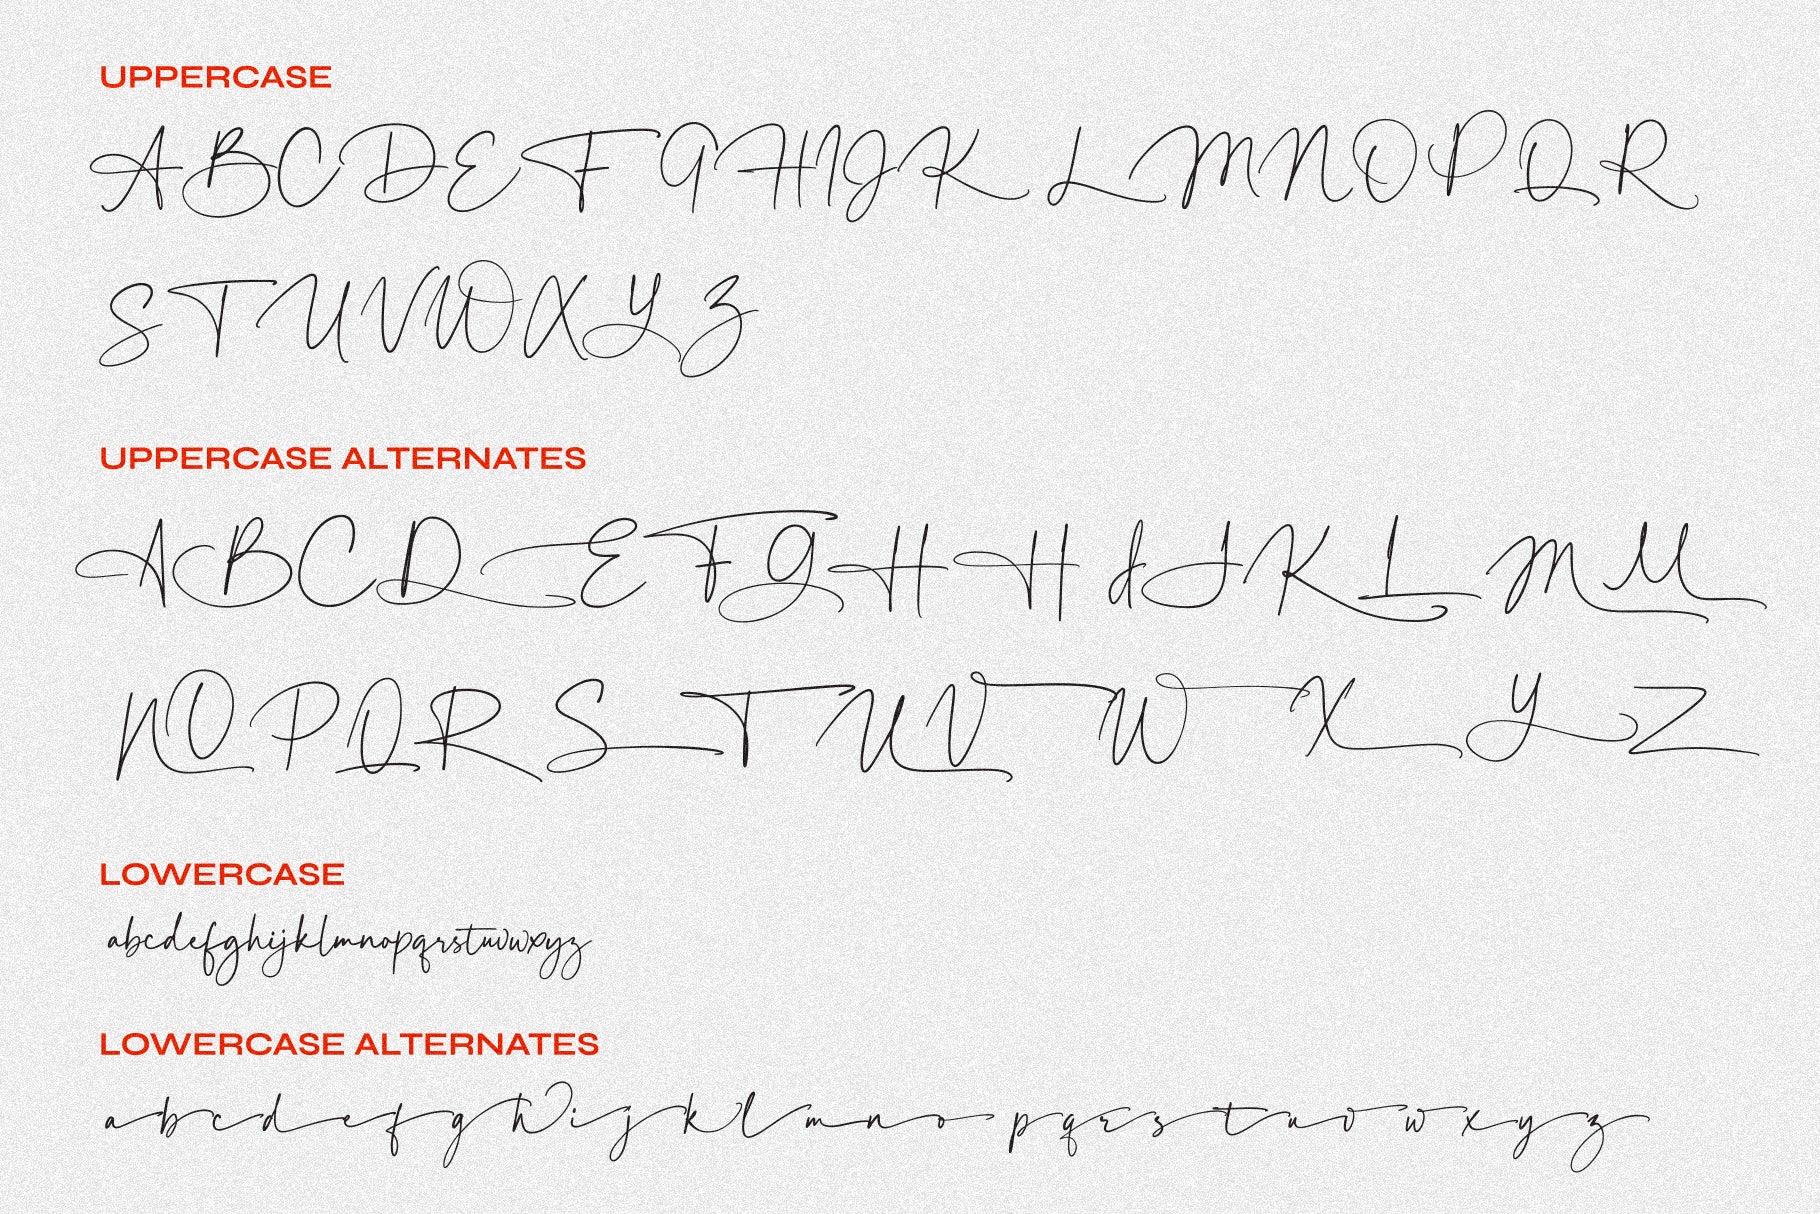 UPPERCASE
ABCDEFGHIJKLMNOPQR
STUVWXYZ
UPPERCASE ALTERNATES
ABCDEFGHHIJKLMM
NOPQRSTUVWXYZ
LOWERCASE
abcdefghijklmnopqrstuvwxyz
LOWERCASE ALTERNATES
abcdefghijklmno pqrstuvwxyz